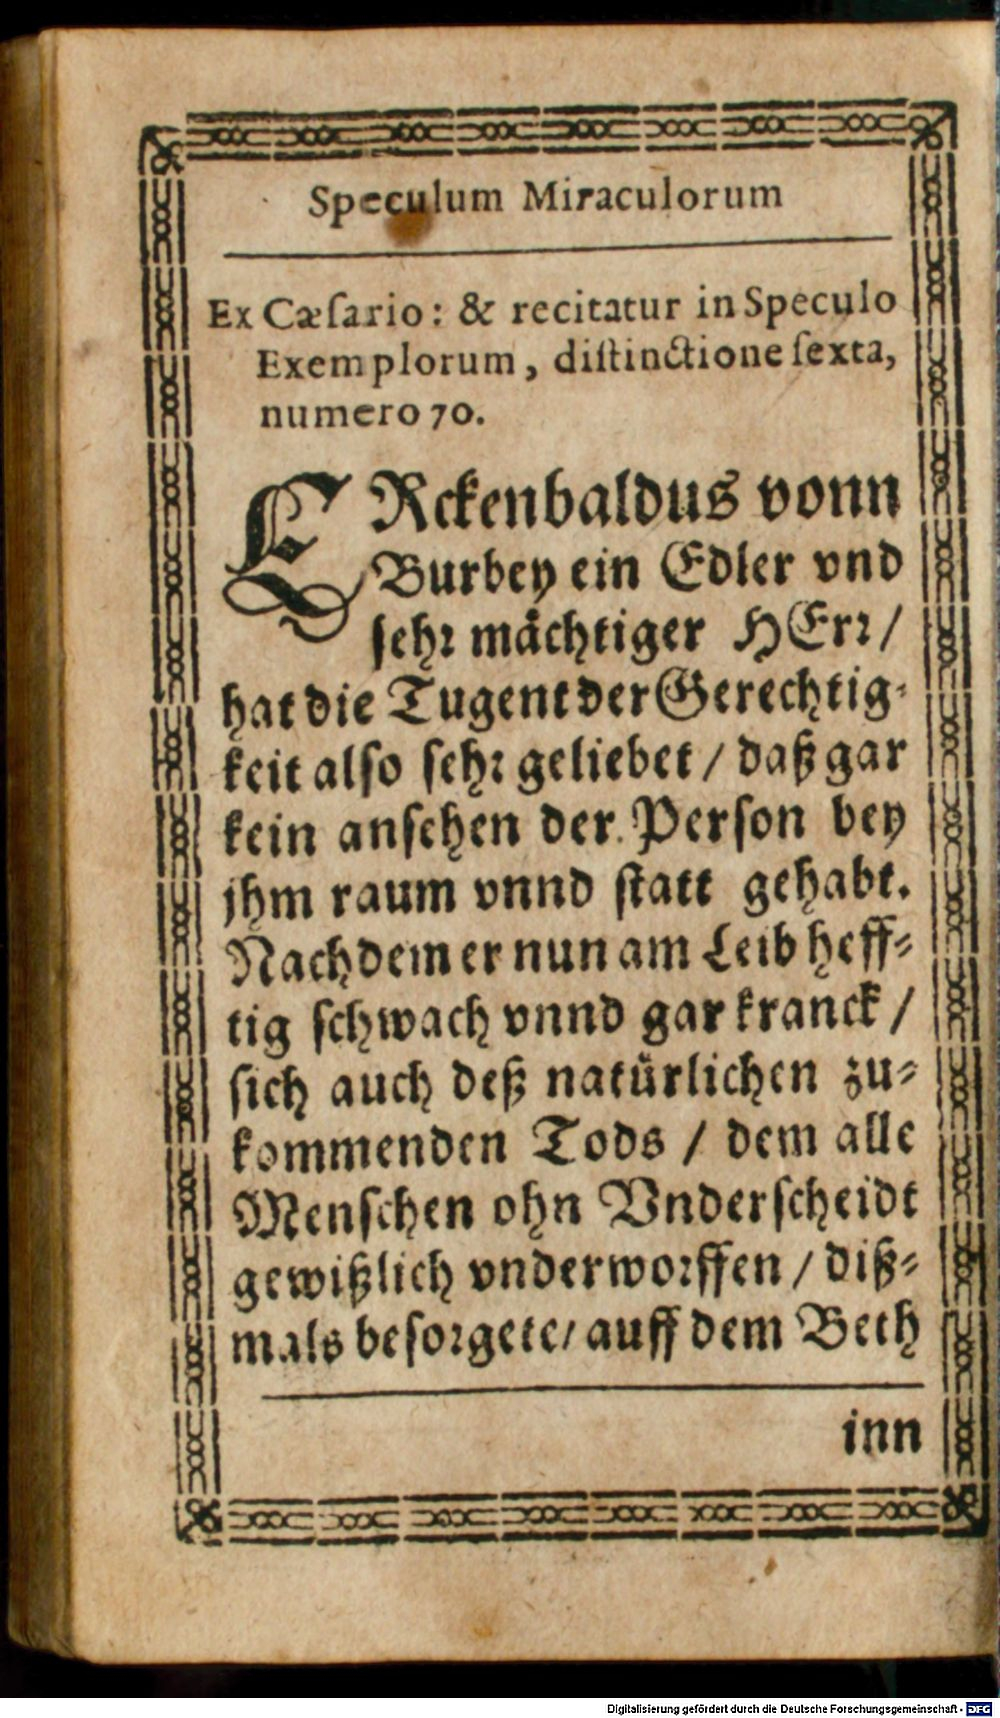 Speculum Miraculorum
Ex Cæſario: & recitatur in Speculo
Exemplorum, diſtinctione ſexta,
numero 70.
ERckenbaldus vonn
Burbey ein Edler vnd
ſehꝛ mächtiger HErꝛ /
hat die Tugent der Gerechtig⸗
keit alſo ſehꝛ geliebet / daß gar
kein anſehen der Perſon bey
jhm raum vnnd ſtatt gehabt.
Nachdem er nun am Leib heff⸗
tig ſchwach vnnd gar kranck /
ſich auch deß natürlichen zu⸗
kommenden Tods / dem alle
Menſchen ohn Vnderſcheidt
gewißlich vnderwoꝛffen / diß⸗
mals beſoꝛgete / auff dem Beth
inn
Digitalisierung gefördert durch die Deutsche Forschungsgemeinschaft - DFG